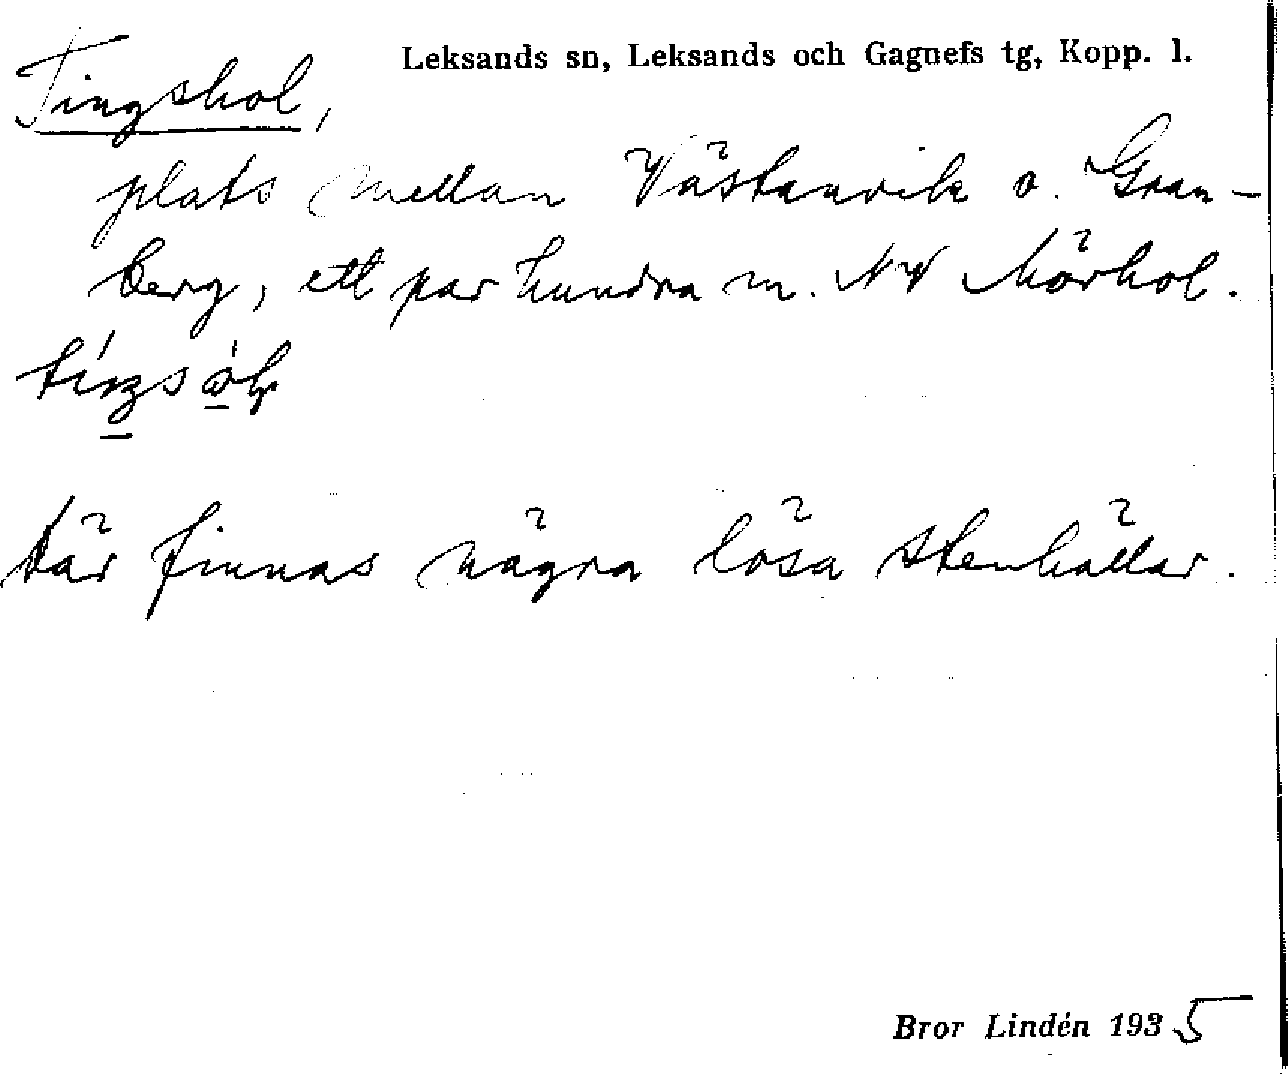 Leksands sn, Leksands och Gagnefs tg, Kopp. l.
Tingshol,
plats mellan Västanvik o. Gran-
berg, ett par hundra m. NV Mörhol.
Där finnas några lösa stenhällar.
Bror Lindén 1935